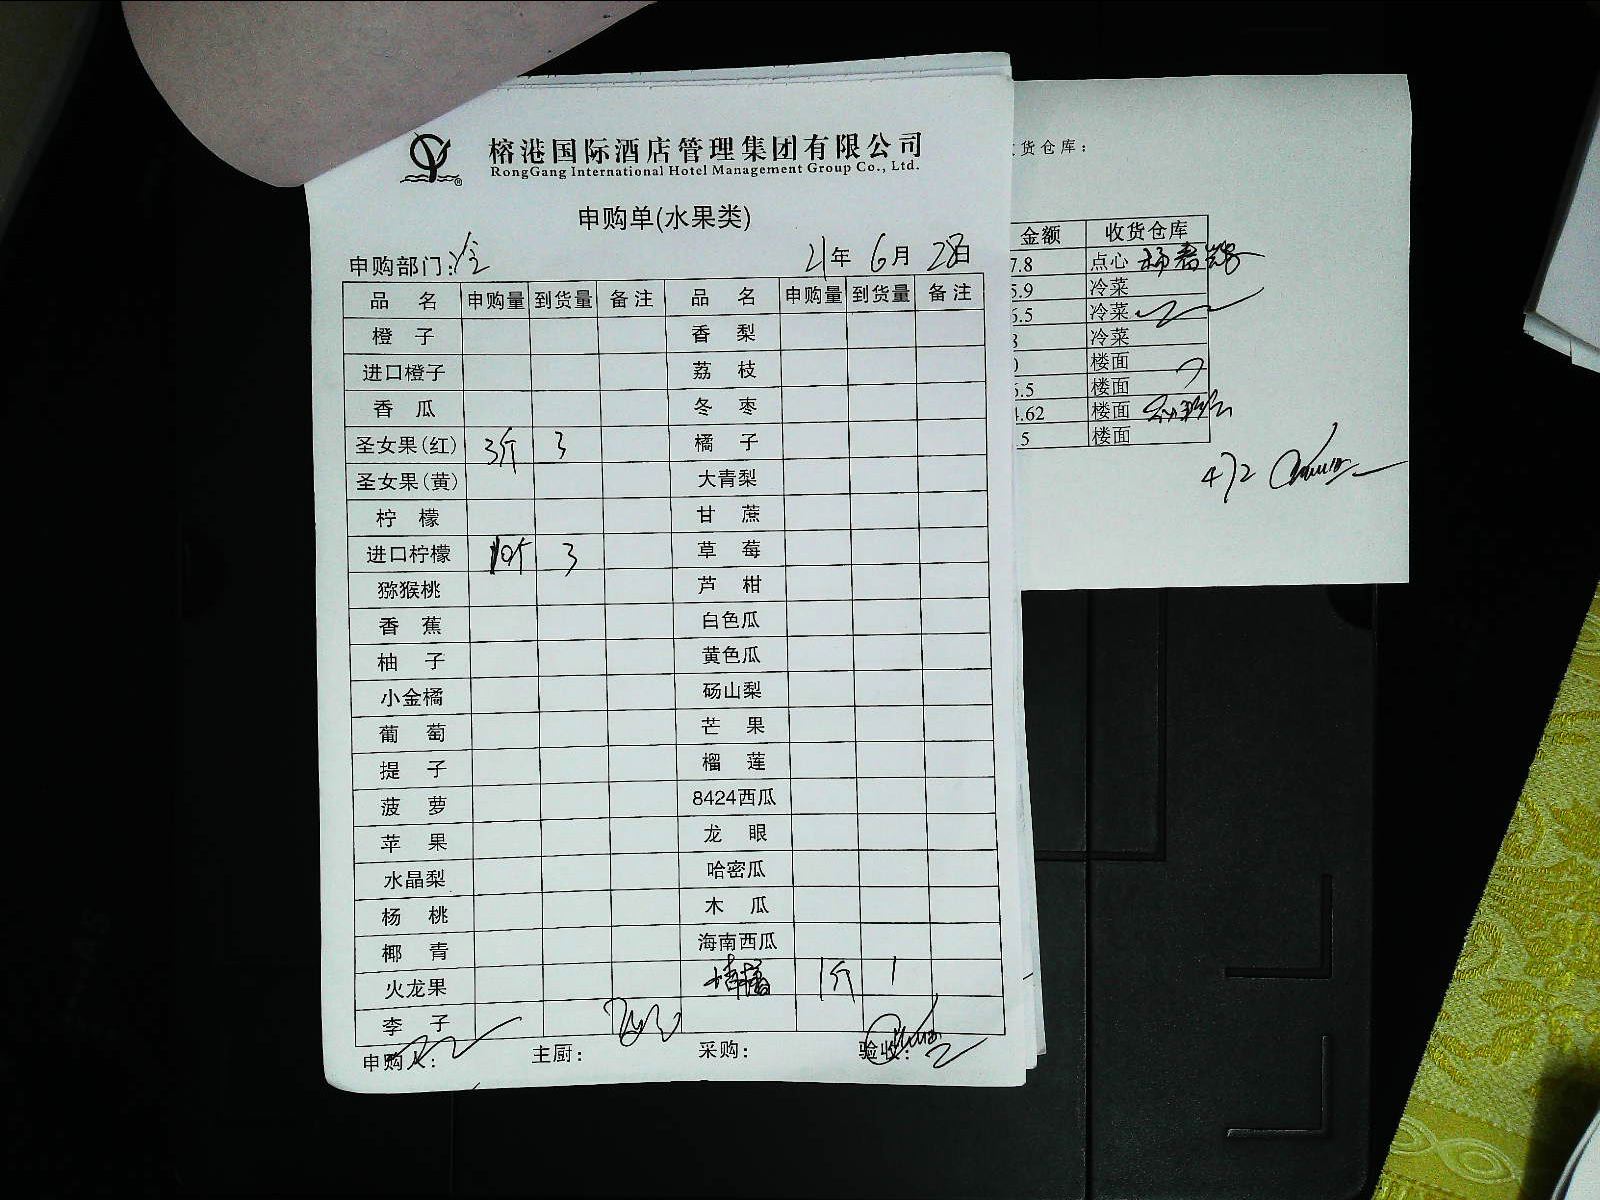 榕港国际酒店管理集团有限公司
RongGang International Hotel Management Group Co., Ltd.
申购单(水果类)
申购部门: 21年 6月 28日
品 名 申购量 到货量 备注 品 名 申购量 到货量 备注
橙 子 香 梨
进口橙子 荔 枝
香 瓜 冬 枣
圣女果(红) 3斤 3 橘 子
圣女果(黄) 大青梨
柠 檬 甘 蔗
进口柠檬 3 草 莓
猕猴桃 芦 柑
香 蕉 白色瓜
柚 子 黄色瓜
小金橘 砀山梨
葡 萄 芒 果
提 子 榴 莲
菠 萝 8424西瓜
苹 果 龙 眼
水晶梨 哈密瓜
杨 桃 木 瓜
椰 青 海南西瓜
火龙果 1斤 1
李 子
申购人: 主厨: 采购: 验收:
货仓库:
金额 收货仓库
7.8 点心
5.9 冷菜
6.5 冷菜
冷菜
楼面
6.5 楼面
4.62 楼面
5 楼面
472